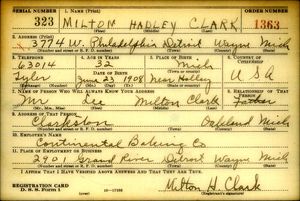 SERIAL NUMBER 1. NAME (Print) ORDER NUMBER
323 MILTON HADLEY CLARK 1363
2. ADDRESS (Print)
3774 W. Philadelphia Detroit Wayne Mich
3. TELEPHONE 4. AGE IN YEARS 5. PLACE OF BIRTH 6. COUNTRY OF CITIZENSHIP
63014 32 Mich
Tyler DATE OF BIRTH
June 23 1908 Holley U S A
7. NAME OF PERSON WHO WILL ALWAYS KNOW YOUR ADDRESS 8. RELATIONSHIP OF THAT PERSON
Mr Milton Clark Father
9. ADDRESS OF THAT PERSON
Clarkston Oakland Mich
10. EMPLOYER'S NAME
Continental Baking Co
11. PLACE OF EMPLOYMENT OR BUSINESS
2901 Grand River Detroit Wayne Mich
I AFFIRM THAT I HAVE VERIFIED ABOVE ANSWERS AND THAT THEY ARE TRUE.
REGISTRATION CARD
D. S. S. Form 1 Milton H. Clark